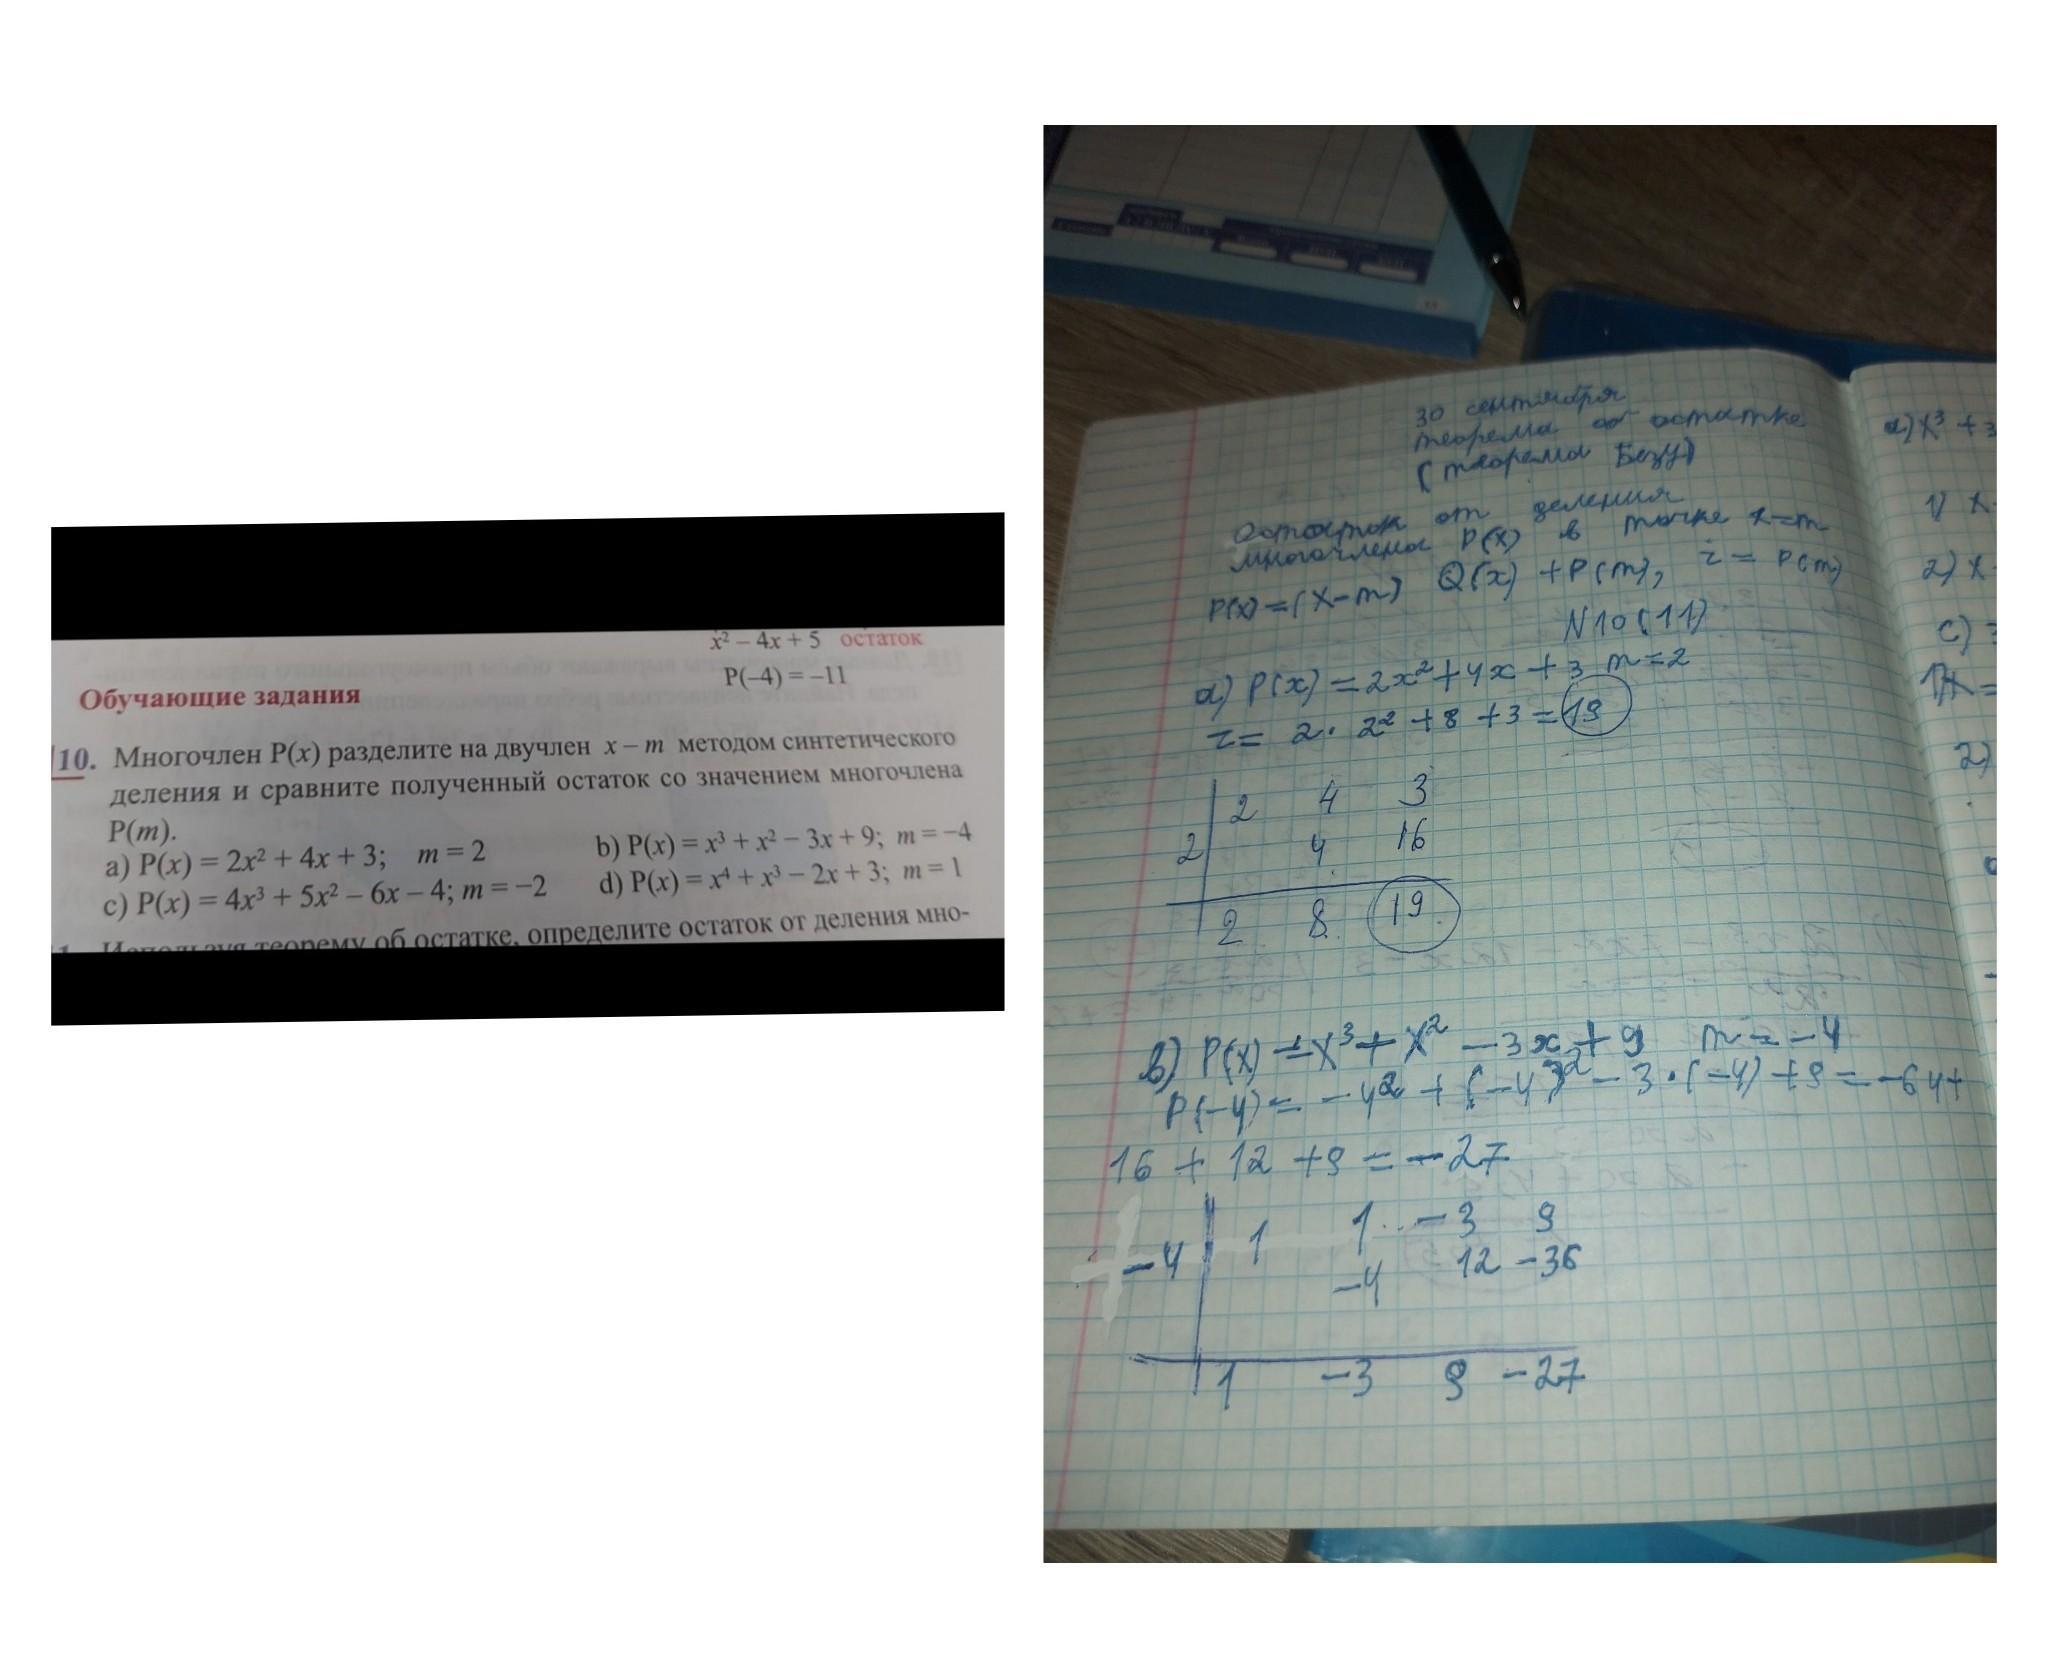 x² – 4x + 5 остаток
P(–4) = –11
Обучающие задания
10. Многочлен P(x) разделите на двучлен x – m методом синтетического
деления и сравните полученный остаток со значением многочлена
P(m).
a) P(x) = 2x² + 4x + 3; m = 2 b) P(x) = x³ + x² – 3x + 9; m = –4
c) P(x) = 4x³ + 5x² – 6x – 4; m = –2 d) P(x) = x⁴ + x³ – 2x + 3; m = 1
Используя теорему об остатке, определите остаток от деления мно-
30 сентября
теорема об остатке
(теорема Безу)
Остаток от деления
многочлена P(x) в точке x=m
P(x)=(x-m) Q(x) +P(m), r = P(m)
N10(11)
a) P(x) = 2x²+4x+3 m=2
r= 2. 2² +8 +3 = 19
2 4 3
2 4 16
2 8 19
в) P(x) =x³+x² -3x+9 m=-4
P(-4)= -4² + (-4)² -3·(-4)+9 = -64+
16 + 12 +9 = -27
1 1 -3 9
-4 -4 12 -36
1 -3 9 -27
a) x³ + 3
1) x
2) x
c)
1) x =
2)